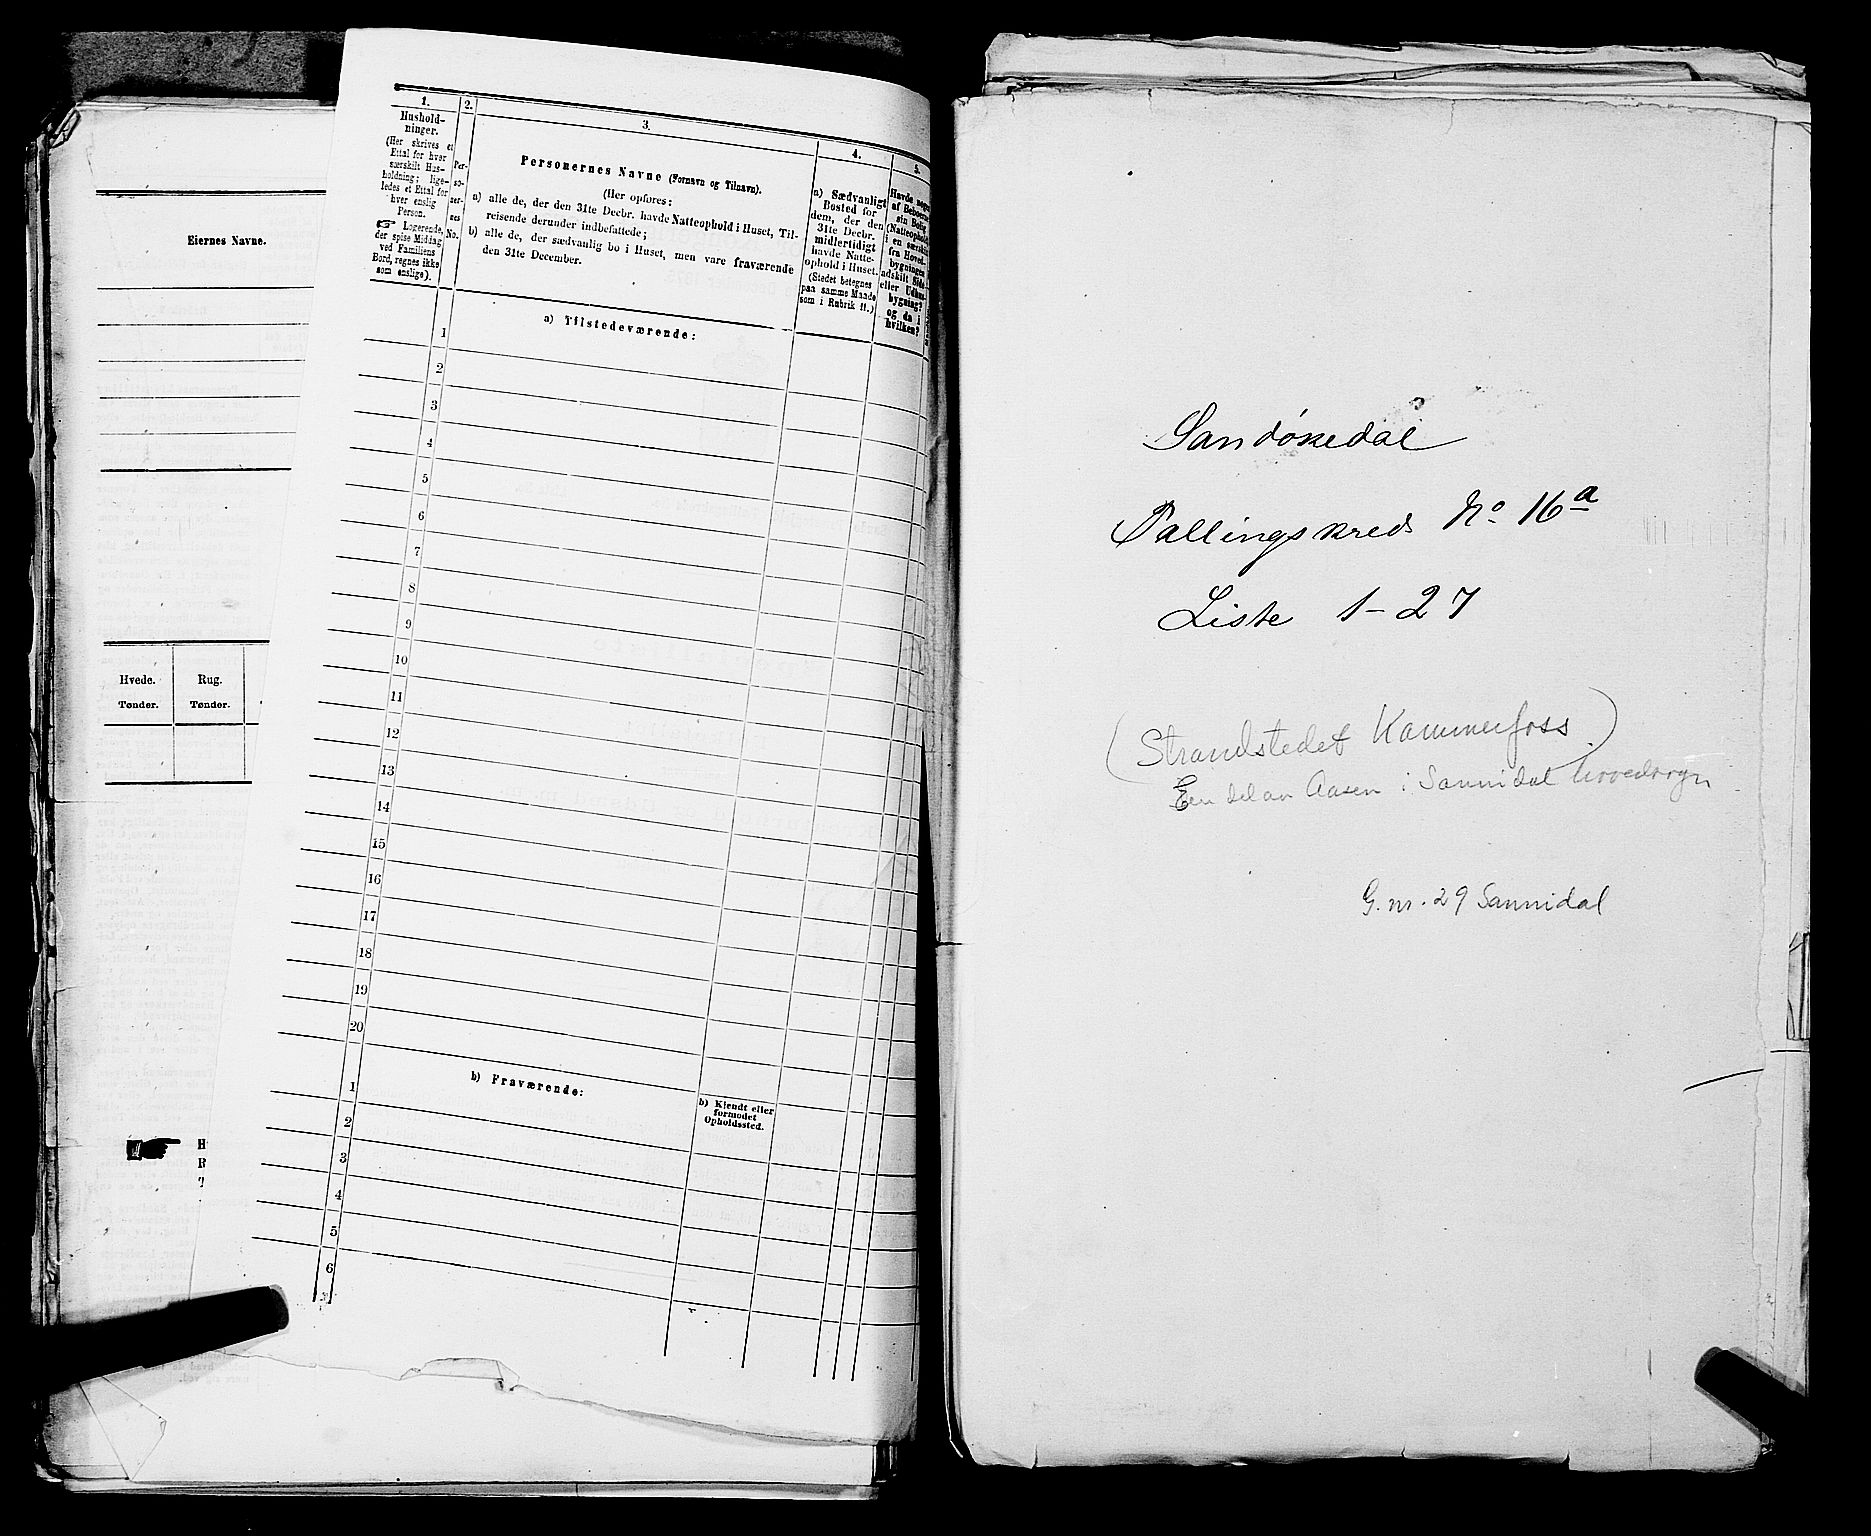 Eiernes Navne.
Hvede.
Rug.
Tønder.
Tønder.
H
R
1.
2.
3.
4.
5.
Hushold-
ninger.
(Her skrives et
Ettal for hver
særskilt Hus-
holdning; lige-
ledes et Ettal for
hver enslig
Person.
☞ Logerende,
der spise Middag
ved Familiens
Bord, regnes ikke
som enslige).
Per-
so-
ner-
nes
No.
Personernes Navne (Fornavn og Tilnavn).
(Her opføres:
a) alle de, der den 31te Decbr. havde Natteophold i Huset, Til-
reisende derunder indbefattede;
b) alle de, der sædvanlig bo i Huset, men vare fraværende
den 31te December.
a) Sædvanligt
Bosted for
dem, der den
31te Decbr.
midlertidigt
havde Natte-
ophold i Huset.
(Stedet betegnes
paa samme Maade
som i Rubrik 11.)
Havde nogen
af Beboerne
sin Bolig
(Natteophold)
i en særskilt
fra Hoved-
bygningen
adskilt Side-
eller Udhus-
bygning?
og da i
hvilken?
a) Tilstedeværende:
1
2
3
4
5
6
7
8
9
10
11
12
13
14
15
16
17
18
19
20
b) Fraværende:
b) Kjendt eller
formodet
Opholdssted.
1
2
3
4
5
6
Sandøkedal
Tællingskreds No 16a
Liste 1-27
(Strandstedet Kammerfoss)
En del av Aasen i Sannidal hovedsogn
G. nr. 29 Sannidal